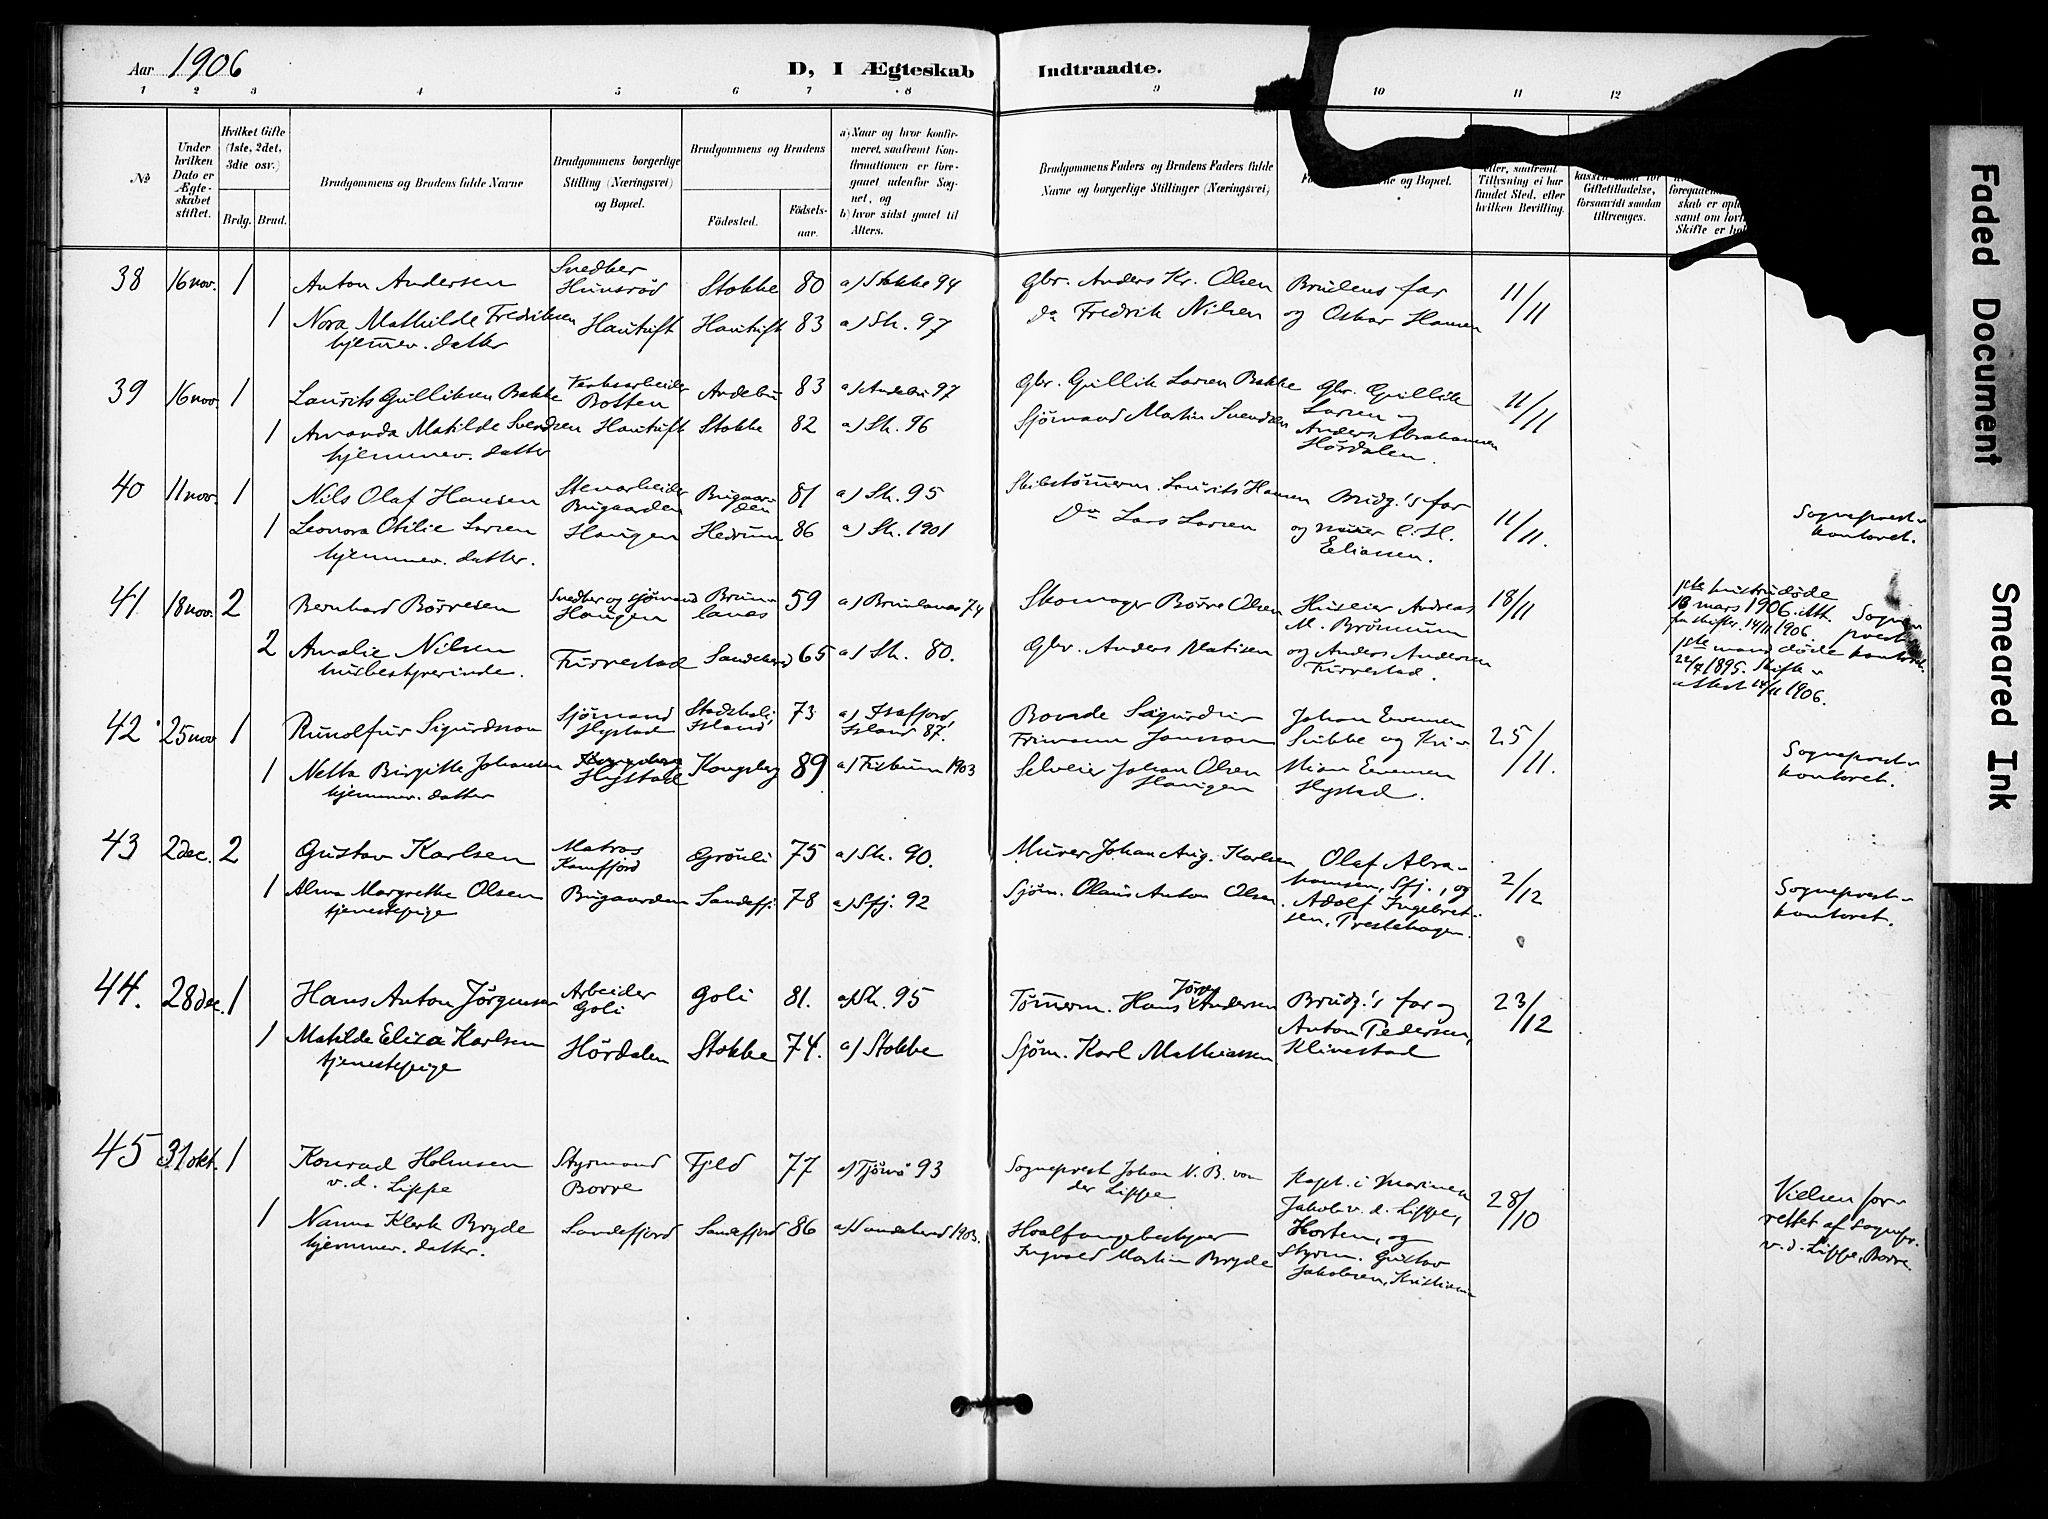 Aar 1906
D, I Ægteskab Indtraadte.
1 2 3 4 5 6 7 8 9 10 11 12
No
Under hvilken Dato er Ægteskabet stiftet.
Hvilket Gifte (1ste, 2det, 3die osv.)
Brdg. Brud.
Brudgommens og Brudens fulde Navne
Brudgommens borgerlige Stilling (Næringsvei) og Bopæl.
Brudgommens og Brudens
Födested. Födselsaar.
a) Naar og hvor konfirmeret, saafremt Konfirmationen er foregaaet udenfor Sognet, og
b) hvor sidst gaaet til Alters.
Brudgommens Faders og Brudens Faders fulde Navne og borgerlige Stillinger (Næringsvei)
og Bopæl.
eller, saafremt Tillysning ei har fundet Sted, efter hvilken Bevilling.
Giftetilladelse, forsaavidt saadan tiltrænges.
38 16 nov. 1 Anton Andersen Snedker Hunsrød Stokke 80 a) Stokke 94 Gbr. Anders Kr. Olsen Brudens far 11/11
1 Nora Mathilde Fredriksen Hautuft Hautuft 83 a) Sh. 97 Do Fredrik Nilsen og Oskar Hansen
hjemmev. datter
39 16 nov. 1 Laurits Gulliksen Bakke Verksarbeider Botten Andebu 83 a) Andebu 97 Gbr. Gullik Larsen Bakke Gbr. Gullik Larsen og 11/11
1 Amanda Matilde Svendsen Hautuft Stokke 82 a) Sh. 96 Sjømand Martin Svendsen Anders Abrahamsen Hørdalen.
hjemmev. datter
40 11 nov. 1 Nils Olaf Hansen Stenarbeider Bugaarden Bugaarden 81 a) Sh. 95 Skibstømerm. Laurits Hansen Brudg.'s far 11/11.
1 Leonora Otilie Larsen Haugen Hedrum 86 a) Sh. 1901 Do Lars Larsen og murer C. H. Eliassen. Sogneprestkontoret.
hjemmev. datter.
41. 18 nov. 2 Bernhard Børresen Snedker og sjømand Haugen Brunlanes 59 a) Brunlanes 74 Skomager Børre Olsen Huseier Andreas M. 18/11 1ste hustru døde 18 mars 1906. Att. fra skifter. 14/11 1906.
2 Amalie Nilsen Furrestad Sandeherred 65 a) Sh. 80. Gbr. Anders Matisen og Anders Andersen Furrestad. 1ste mand døde 1895. Skifteattest 14/11 1906. Sogneprestkontoret.
husbestyrerinde.
42 25 nov 1 Runolfur Sigurdsson Sjømand Hystad Island 73 a) Isafjord, Island 87. Bonde Sigurdur Johan Evensen 25/11.
1 Netta Birgitte Johansen Hystad Kongsberg 89 a) 1903 Selveier Johan Olsen Haugen Mian Evensen Hystad. Sogneprestkontoret.
hjemmev. datter
43 2 dec. 2 Gustav Karlsen Matros Kamfjord Grønli 75 a) Sh. 90. Murer Johan Aug. Karlsen Olaf Abrahamsen, Sfj., og 2/12
1 Alma Margrethe Olsen Bugaarden Sandefj. 78 a) Sfj. 92 Sjøm. Olaus Anton Olsen. Adolf Ingebretsen, Prestehagen. Sogneprestkontoret.
tjenestepige
44. 28 dec. 1 Hans Anton Jørgensen Arbeider Goli Goli 81. a) Sh. 95 Tømerm. Hans Jørg. Andersen Brudg.'s far og 23/12
1 Matilde Eliza Karlsen Hørdalen Stokke 74. a) Stokke Sjøm. Karl Mathiassen Anton Pedersen, Klinestad
tjenestepige
45 31 okt. 1 Konrad Holmsen v. d. Lippe Styrmand Borre Fjeld 77 a) Tjømø 93 Sogneprest Johan N. B. von der Lippe Kapt. i Marinen Jakob v. d. Lippe, 28/10
1 Nanna Klerk Bryde Sandefjord Sandefjord 86 a) Sandeherred 1903. Hvalfangebestyrer Ingvald Martin Bryde Horten, og Styrm. Gustav Jakobsen, Kristiania
hjemmev. datter. Vielsen forrettet af sognepr. v. d. Lippe, Borre.
Faded Document
Smeared Ink